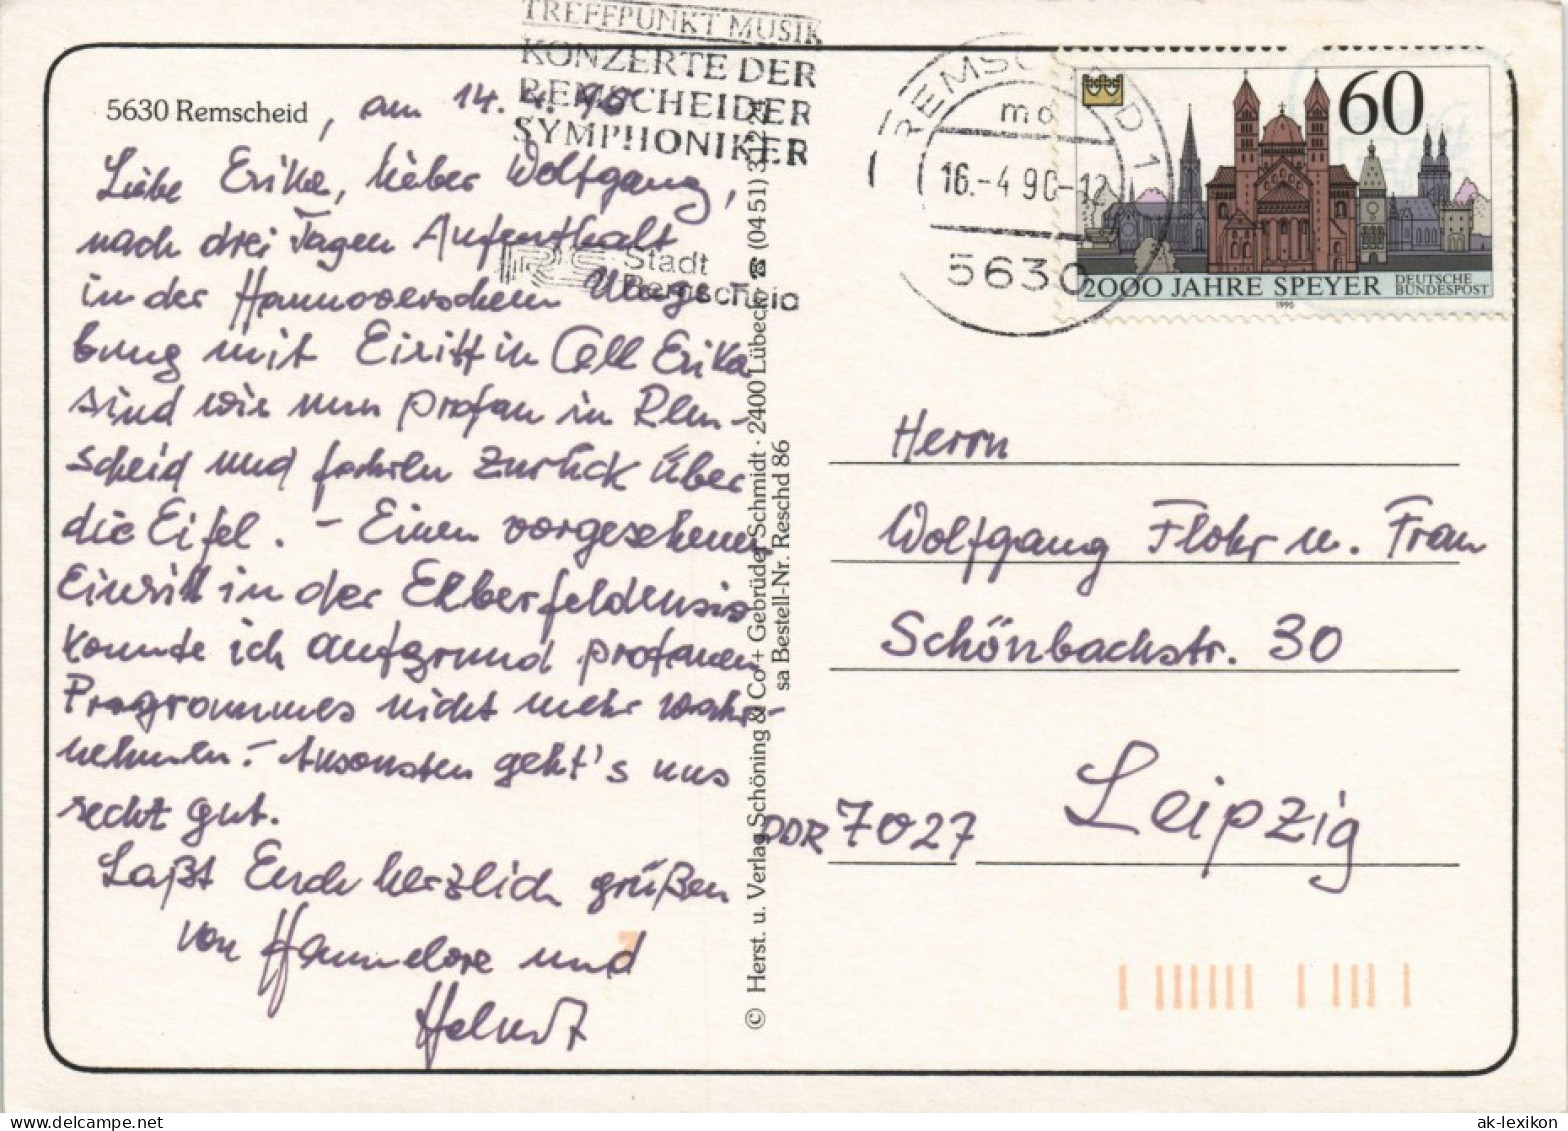 TREFFPUNKT MUSIK
KONZERTE DER
REMSCHEIDER
SYMPHONIKER
Stadt
Remscheid
REMSCHEID 1
md
16.-4.90-12
5630
60
2000 JAHRE SPEYER
DEUTSCHE
BUNDESPOST
1990
5630 Remscheid, am 14.4.90
Liebe Erika, lieber Wolfgang,
nach drei Tagen Aufenthalt
in der Hannoverschen Umge
bung mit Eiritt in Cell Erika
sind wir nun profan in Rem-
scheid und fahren zurück über
die Eifel. – Einen vorgesehenen
Einritt in der Elberfeldensis
konnte ich aufgrund profanen
Programmes nicht mehr wahr-
nehmen. – Ansonsten geht's uns
recht gut.
Laßt Euch herzlich grüßen
von Hannelore und
Helmut
© Herst. u. Verlag Schöning & Co + Gebrüder Schmidt · 2400 Lübeck · ☎ (04 51) 3 12 24
sa Bestell-Nr. Reschd 86
Herrn
Wolfgang Flohr u. Frau
Schönbachstr. 30
DDR 7027 Leipzig
ak-lexikon